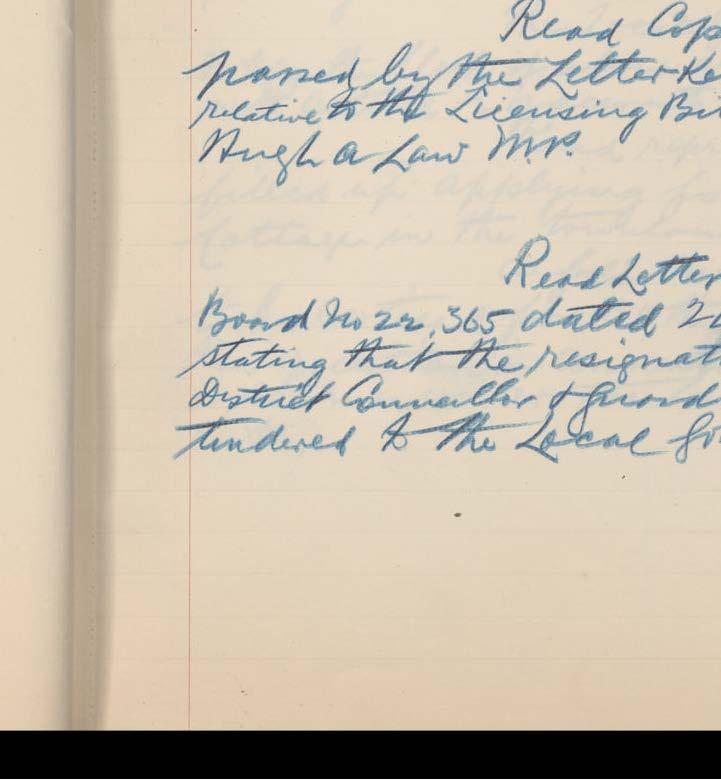 Read Cop
passed by the Letterke
relative to the Licensing Bi
Hugh A Law M.P.
Read Letter
Board No 22,365 dated 2
stating that the resignat
District Councillor & Guard
tendered to the Local Go